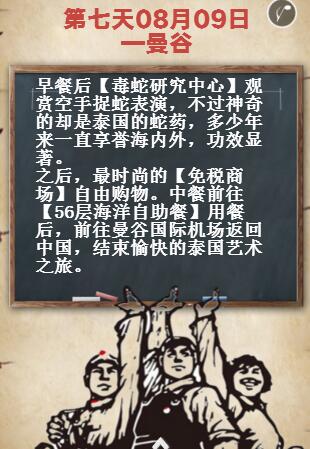 第七天08月09日
—曼谷
早餐后【毒蛇研究中心】观
赏空手捉蛇表演，不过神奇
的却是泰国的蛇药，多少年
来一直享誉海内外，功效显
著。
之后，最时尚的【免税商
场】自由购物。中餐前往
【56层海洋自助餐】用餐
后，前往曼谷国际机场返回
中国，结束愉快的泰国艺术
之旅。